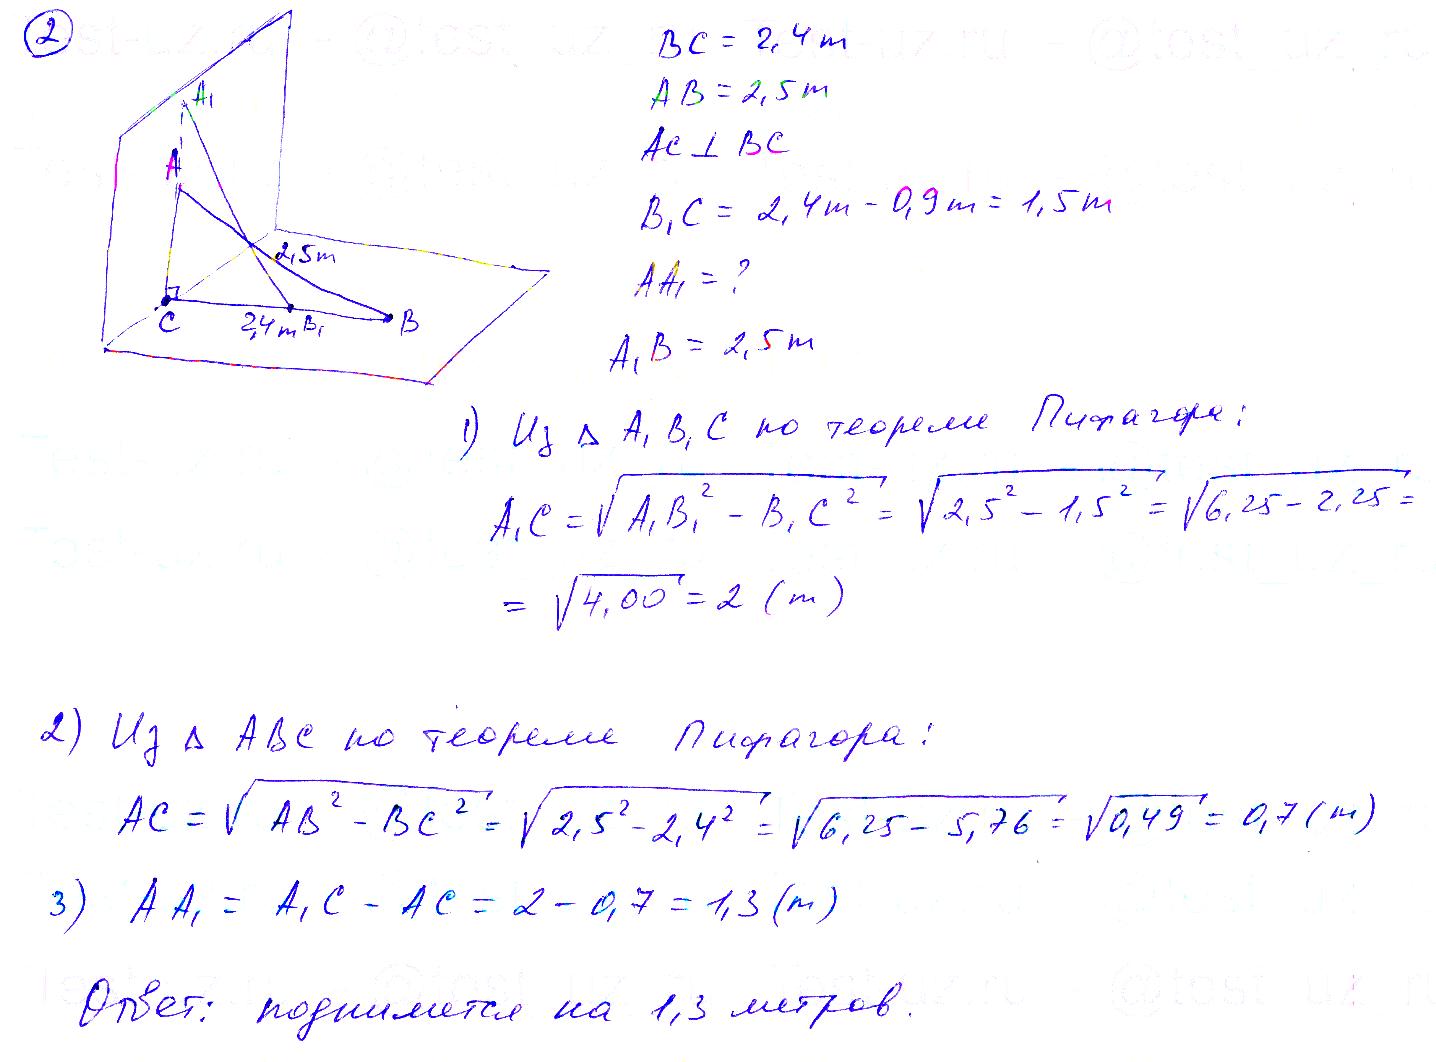 2
A₁
A
2,5m
C
2,4m B₁
B
BC = 2,4m
AB = 2,5m
AC ⊥ BC
B₁C = 2,4m - 0,9m = 1,5m
AA₁ = ?
A₁B = 2,5m
1) Из Δ A₁B₁C по теореме Пифагора:
A₁C = √(A₁B₁² - B₁C²) = √(2,5² - 1,5²) = √(6,25 - 2,25) =
= √4,00 = 2 (m)
2) Из Δ ABC по теореме Пифагора:
AC = √(AB² - BC²) = √(2,5² - 2,4²) = √(6,25 - 5,76) = √0,49 = 0,7 (m)
3) AA₁ = A₁C - AC = 2 - 0,7 = 1,3 (m)
Ответ: поднимется на 1,3 метров.